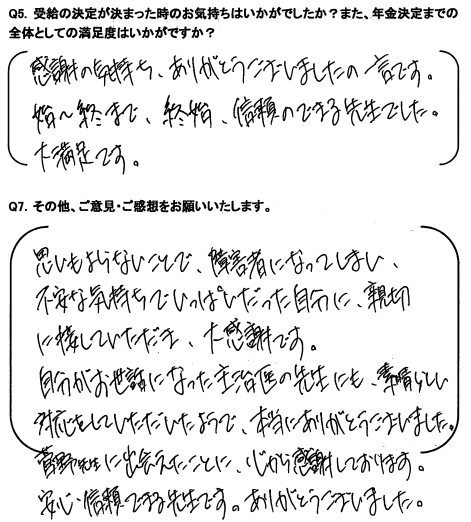 Q5. 受給の決定が決まった時のお気持ちはいかがでしたか？また、年金決定までの
全体としての満足度はいかがですか？
感謝の気持ち、ありがとうございましたの一言です。
始～終まで、終始、信頼のできる先生でした。
大満足です。
Q7. その他、ご意見・ご感想をお願いいたします。
思いもよらないことで、障害者になってしまい、
不安な気持ちでいっぱいだった自分に、親切
に接していただき、大感謝です。
自分がお世話になった主治医の先生にも、素晴らしい
対応をしていただいたようで、本当にありがとうございました。
菅野先生に出会えたことに、心から感謝しております。
安心・信頼できる先生です。ありがとうございました。